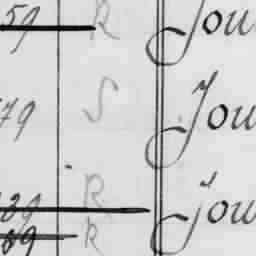 59 R Jou
79 S Jou
39 R Jou
89 R